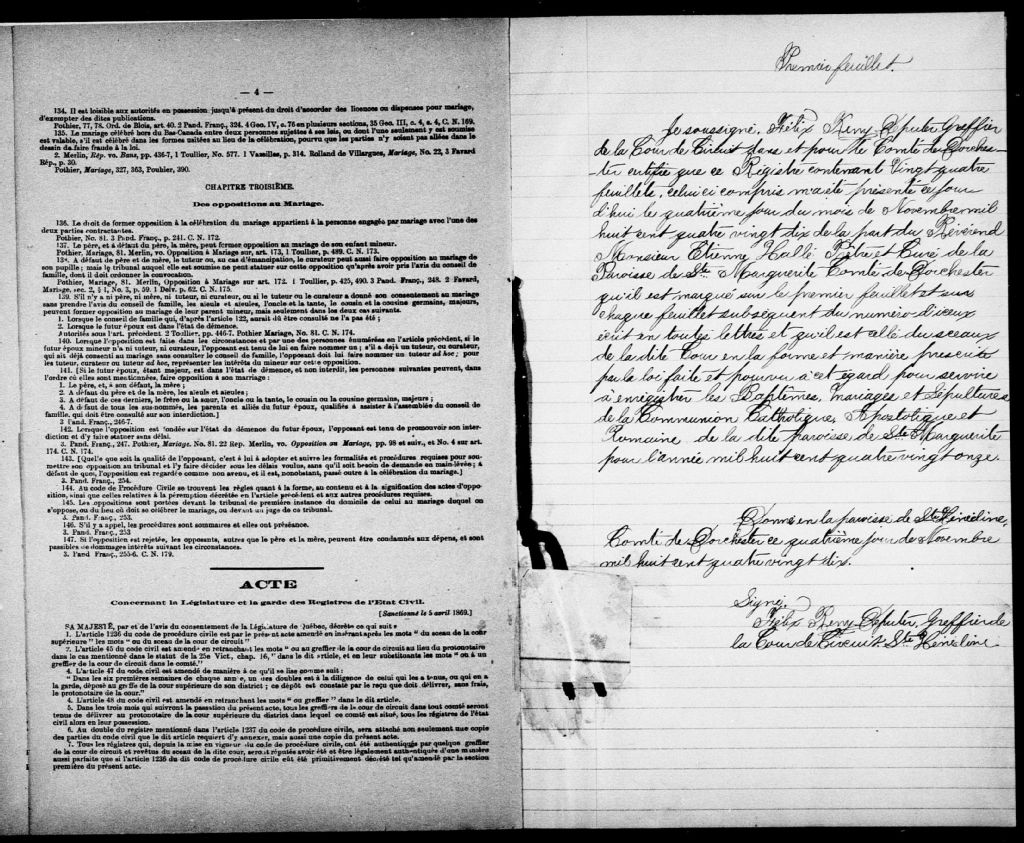 — 4 —
134. Il est loisible aux autorités en possession jusqu'à présent du droit d'accorder des licences ou dispenses pour mariage,
d'exempter des dites publications.
Pothier, 77, 78. Ord. de Blois, art. 40. 2 Pand. Franç., 324. 4 Geo. IV, c. 76 en plusieurs sections, 35 Geo. III, c. 4, s. 4, C. N. 169.
135. Le mariage célébré hors du Bas-Canada entre deux personnes sujettes à ses lois, ou dont l'une seulement y est soumise
est valable, s'il est célébré dans les formes usitées au lieu de la célébration, pourvu que les parties n'y soient pas allées dans le
dessein de faire fraude à la loi.
2. Merlin, Rép. vo. Bans, pp. 436-7, 1 Toullier, No. 577. 1 Vazeilles, p. 314. Rolland de Villargues, Mariage, No. 22, 3 Favard
Rép., p. 30.
Pothier, Mariage, 327, 363, Pouhier, 390.
CHAPITRE TROISIÈME.
Des oppositions au Mariage.
136. Le droit de former opposition à la célébration du mariage appartient à la personne engagée par mariage avec l'une des
deux parties contractantes.
Pothier, No. 81. 3 Pand. Franç., p. 241. C. N. 172.
137. Le père, et à défaut du père, la mère, peut former opposition au mariage de son enfant mineur.
Pothier, Mariage, 81. Merlin, vo. Opposition à Mariage, sur art. 173, 1 Toullier, p. 489. C. N. 173.
A défaut de père et de mère, le tuteur ou, au cas d'émancipation, le curateur peut aussi faire opposition au mariage de
son pupille; mais le tribunal auquel elle est soumise ne peut statuer sur cette opposition qu'après avoir pris l'avis du conseil de
famille, dont il doit ordonner la convocation.
Pothier, Mariage, 81. Merlin, Opposition à Mariage sur art. 172. 1 Toullier, p. 425, 490. 3 Pand. Franç., 248. 2 Favard,
Mariage, sec. 2, § 1, No. 3, p. 59. 1 Delv. p. 62. C. N. 175.
139. S'il n'y a ni père, ni mère, ni tuteur, ni curateur, ou si le tuteur ou le curateur a donné son consentement au mariage
sans prendre l'avis du conseil de famille, les aïeuls et aïeules, l'oncle et la tante, le cousin et la cousine germains, majeurs,
peuvent former opposition au mariage de leur parent mineur, mais seulement dans les deux cas suivants.
1. Lorsque le conseil de famille qui, d'après l'article 122, aurait dû être consulté ne l'a pas été ;
2. Lorsque le futur époux est dans l'état de démence.
Autorités sous l'art. précédent. 2 Toullier, pp. 446-7. Pothier Mariage, No. 81. C. N. 174.
140. Lorsque l'opposition est faite dans les circonstances et par une des personnes énumérées en l'article précédent, si le
futur époux mineur n'a ni tuteur, ni curateur, l'opposant est tenu de lui en faire nommer un ; s'il a déjà un tuteur, ou curateur,
qui ait déjà consenti au mariage sans consulter le conseil de famille, l'opposant doit lui faire nommer un tuteur ad hoc ; pour
les tuteur, curateur ou tuteur ad hoc, représenter les intérêts du mineur sur cette opposition.
141. [Si le futur époux, étant majeur, est dans l'état de démence, et non interdit, les personnes suivantes peuvent, dans
l'ordre où elles sont mentionnées, faire opposition à son mariage :
1. Le père, et, à son défaut, la mère ;
2. A défaut du père et de la mère, les aïeuls et aïeules ;
3. A défaut de ces derniers, le frère ou la sœur, l'oncle ou la tante, le cousin ou la cousine germains, majeurs ;
4. A défaut de tous les sus-nommés, les parents et alliés du futur époux, qualifiés à assister à l'assemblée du conseil de
famille, qui doit être consulté sur son interdiction.]
3 Pand. Franç., 246-7.
142. Lorsque l'opposition est fondée sur l'état de démence du futur époux, l'opposant est tenu de promouvoir son inter-
diction et d'y faire statuer sans délai.
3. Pand. Franç., 247. Pothier, Mariage. No. 81. 22 Rep. Merlin, vo. Opposition au Mariage, pp. 98 et suiv., et No. 4 sur art.
174. C. N. 174.
143. [Quelle que soit la qualité de l'opposant, c'est à lui à adopter et suivre les formalités et procédures requises pour sou-
mettre son opposition au tribunal et l'y faire décider sous les délais voulus, sans qu'il soit besoin de demande en main-levée ; à
défaut de quoi, l'opposition est regardée comme non avenu, et il est, nonobstant, passé outre à la célébration du mariage.]
3. Pand. Franç., 254.
144. Au code de Procédure Civile se trouvent les règles quant à la forme, au contenu et à la signification des actes d'oppo-
sition, ainsi que celles relatives à la péremption décrétée en l'article précédent et aux autres procédures requises.
145. Les oppositions sont portées devant le tribunal de première instance du domicile de celui au mariage duquel on
s'oppose, ou du lieu où doit se célébrer le mariage, ou devant un juge de ce tribunal.
3. Pand. Franç., 253.
146. S'il y a appel, les procédures sont sommaires et elles ont préséance.
3. Pand. Franç., 253
147. Si l'opposition est rejetée, les opposants, autres que le père et la mère, peuvent être condamnés aux dépens, et sont
passibles de dommages intérêts suivant les circonstances.
3. Pand Franç., 255-6. C. N. 179.
ACTE
Concernant la Législature et la garde des Registres de l'Etat Civil.
[Sanctionné le 5 avril 1869.]
SA MAJESTÉ, par et de l'avis du consentement de la Législature de Québec, décrète ce qui suit :
1. L'article 1236 du code de procédure civile est par le présent acte amendé en insérant après les mots " du sceau de la cour
supérieure " les mots " ou du sceau de la cour de circuit "
2. L'article 45 du code civil est amendé en retranchant les mots " ou au greffier de la cour de circuit au lieu du protonotaire
dans le cas mentionné dans le statut de la 25e Vict., chap. 16, " dans le dit article, et en leur substituant les mots " ou à un
greffier de la cour de circuit dans le comté."
4. L'article 47 du code civil est amendé de manière à ce qu'il se lise comme suit :
" Dans les six premières semaines de chaque année, un des doubles est à la diligence de celui qui les a tenus, ou qui en a
la garde, déposé au greffe de la cour supérieure de son district ; ce dépôt est constaté par le reçu que doit délivrer, sans frais,
le protonotaire de la cour."
4. L'article 48 du code civil est amendé en retranchant les mots " ou greffier " dans le dit article.
5. Dans les trois mois qui suivront la passation du présent acte, tous les greffiers de la cour de circuit dans tout comté seront
tenus de délivrer au protonotaire de la cour supérieure du district dans lequel ce comté est situé, tous les régistres de l'état
civil alors en leur possession.
6. Au double du registre mentionné dans l'article 1237 du code de procédure civile, sera attaché non seulement une copie
des parties du code civil que le dit article requiert d'y annexer, mais aussi une copie du présent acte.
7. Tous les régistres qui, depuis la mise en vigueur du code de procédure civile, ont été authentiqués par quelque greffier
de la cour de circuit et revêtus du sceau de la dite cour, seront réputés avoir été et être légalement authentiqués d'une manière
aussi parfaite que si l'article 1236 du dit code de procédure civile eût été primitivement décrété tel qu'amendé par la section
première du présent acte.
Premier feuillet.
Je soussigné, Félix Remy, Députer Greffier
de la Cour de Circuit dans et pour le Comté de Dorches-
ter certifie que ce Registre contenant Vingt quatre
feuillets, celui ci compris m'a été présenté ce jour
d'hui le quatrième jour du mois de Novembre mil
huit cent quatre vingt dix de la part du Révérend
Monsieur Etienne Hallé Ptre et Curé de la
Paroisse de Ste Marguerite Comté de Dorchester
qu'il est marqué sur le premier feuillet et sur
chaque feuillet subséquent du numéro d'iceux
écrit en toutes lettres et qu'il est cellé du sceaux
de la dite Cour en la forme et manière prescrite
par la loi faite et pourvu à cet égard pour servir
à enregistrer les Baptêmes, Mariages et Sépultures
de la Communion Catholique, Apostolique et
Romaine de la dite paroisse de Ste Marguerite
pour l'année mil huit cent quatre vingt onze.
Donné en la paroisse de Ste Hénédine,
Comté de Dorchester ce quatrième jour de Novembre
mil huit cent quatre vingt dix.
Signé
Félix Remy Députer Greffier de
la Cour de Circuit Ste Hénédine